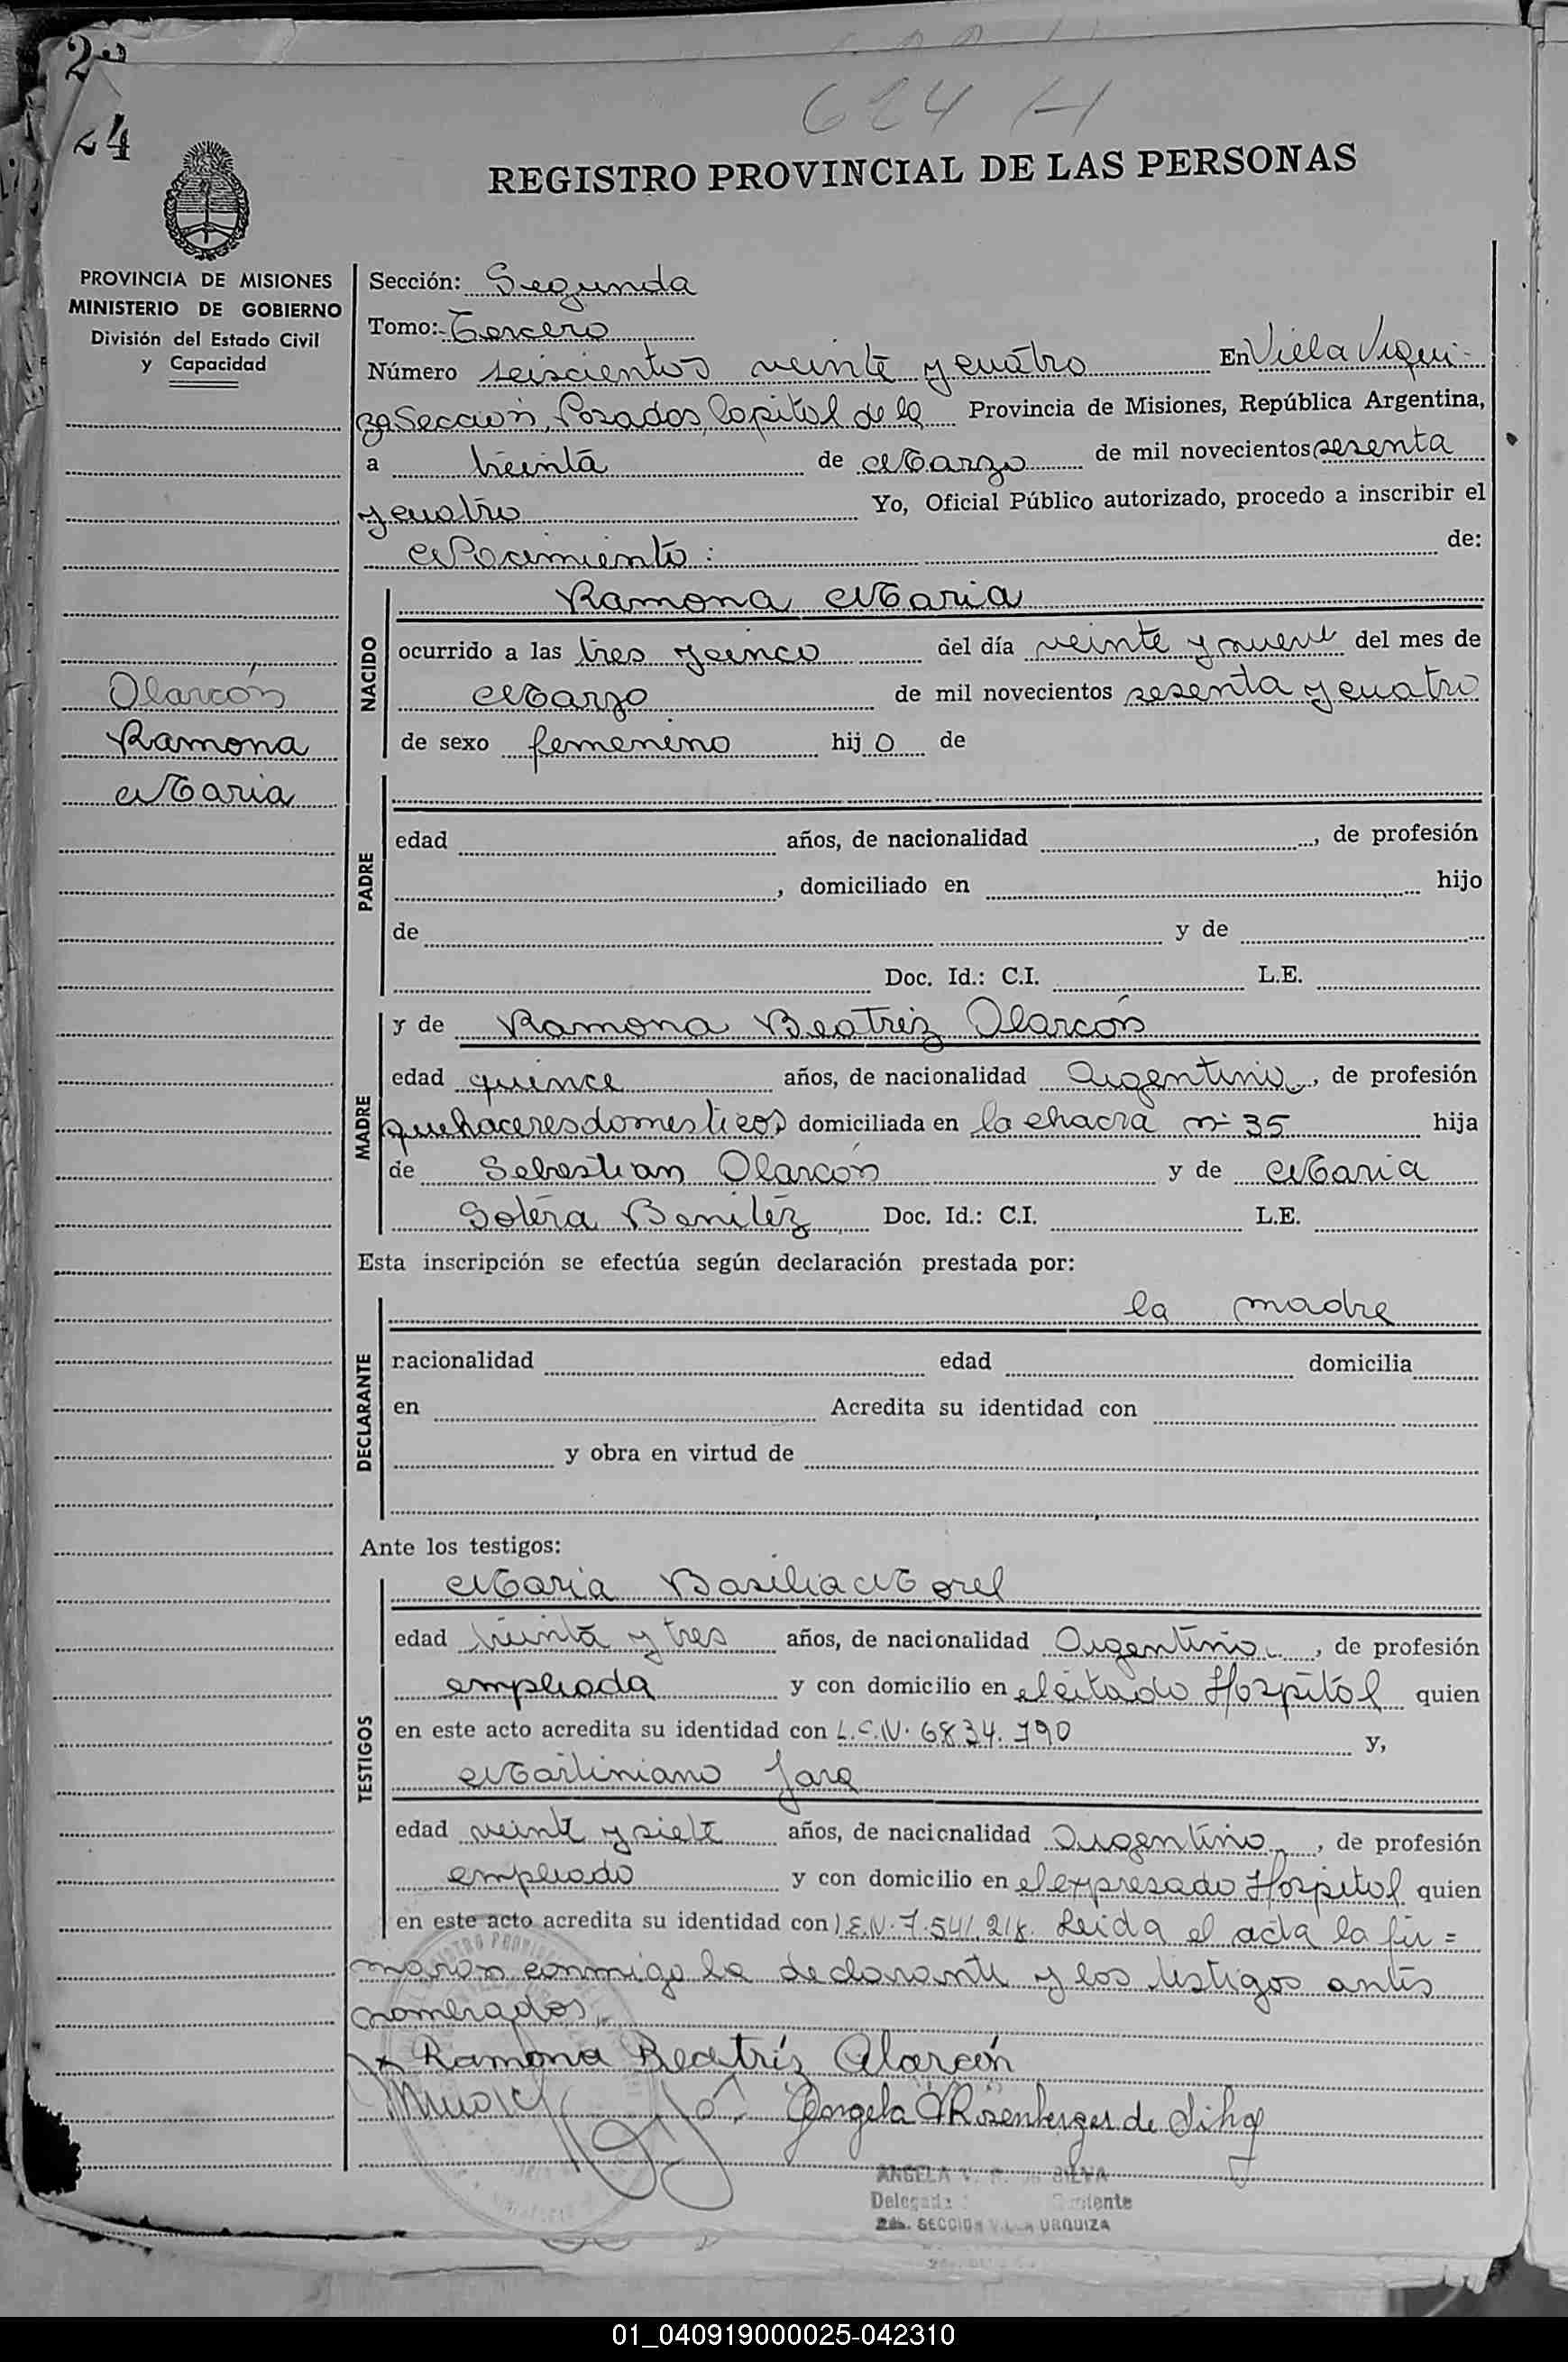 24
624 H
REGISTRO PROVINCIAL DE LAS PERSONAS
PROVINCIA DE MISIONES
MINISTERIO DE GOBIERNO
División del Estado Civil
y Capacidad
Alarcón
Ramona
Maria
Sección: Segunda
Tomo: Tercero
Número seiscientos veinte y cuatro En Villa Urqui-
za Sección, Posadas, Capital de la Provincia de Misiones, República Argentina,
a treinta de Marzo de mil novecientos sesenta
y cuatro Yo, Oficial Público autorizado, procedo a inscribir el
Nacimiento: de:
NACIDO
Ramona Maria
ocurrido a las tres y cinco del día veinte y nueve del mes de
Marzo de mil novecientos sesenta y cuatro
de sexo femenino hijo de
PADRE
edad años, de nacionalidad , de profesión
, domiciliado en hijo
de y de
Doc. Id.: C.I. L.E.
MADRE
y de Ramona Beatriz Alarcón
edad quince años, de nacionalidad Argentina, de profesión
quehaceres domesticos domiciliada en la chacra n- 35 hija
de Sebastian Alarcón y de Maria
Sotera Benitéz Doc. Id.: C.I. L.E.
Esta inscripción se efectúa según declaración prestada por:
DECLARANTE
la madre
nacionalidad edad domicilia
en Acredita su identidad con
y obra en virtud de
Ante los testigos:
TESTIGOS
Maria Basilia Morel
edad treinta y tres años, de nacionalidad Argentina, de profesión
empleada y con domicilio en el citado Hospital quien
en este acto acredita su identidad con L.C.N. 6834.790 y,
Martiniano Jara
edad veinte y siete años, de nacionalidad Argentino, de profesión
empleado y con domicilio en el expresado Hospital quien
en este acto acredita su identidad con L.E.N. 7.541.218. Leida el acta la fir=
maron conmigo la declarante y los testigos antes
nombrados.
x Ramona Beatríz Alarcón
Angela Rosenberger de Silva
ANGELA V. R. DE SILVA
Delegada
2da. SECCION VILLA URQUIZA
01_040919000025-042310